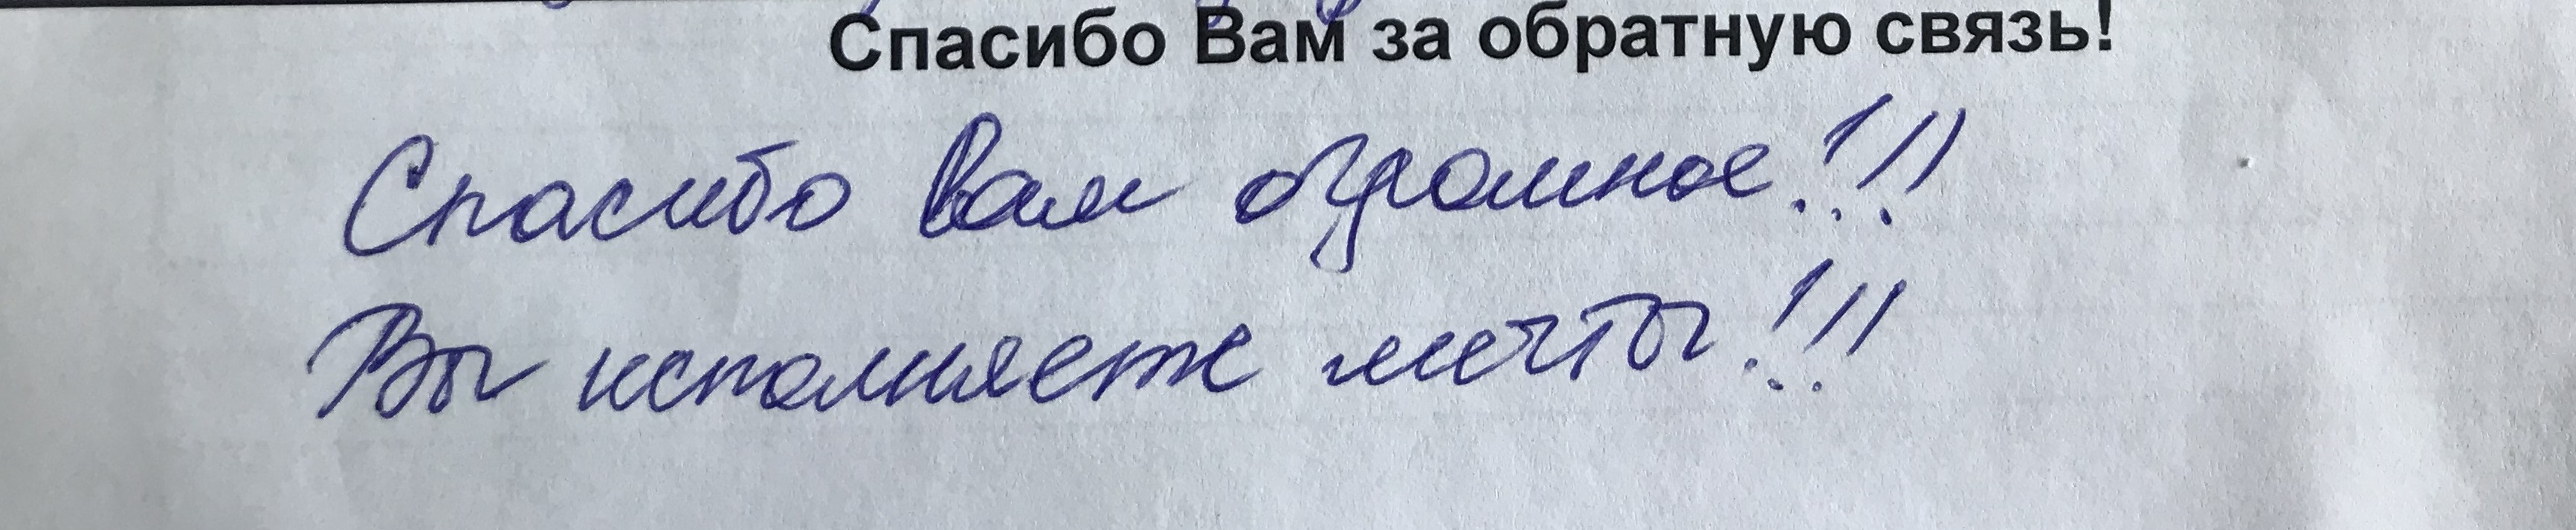 Спасибо Вам за обратную связь!
Спасибо вам огромное!!!
Вы исполняете мечты!!!